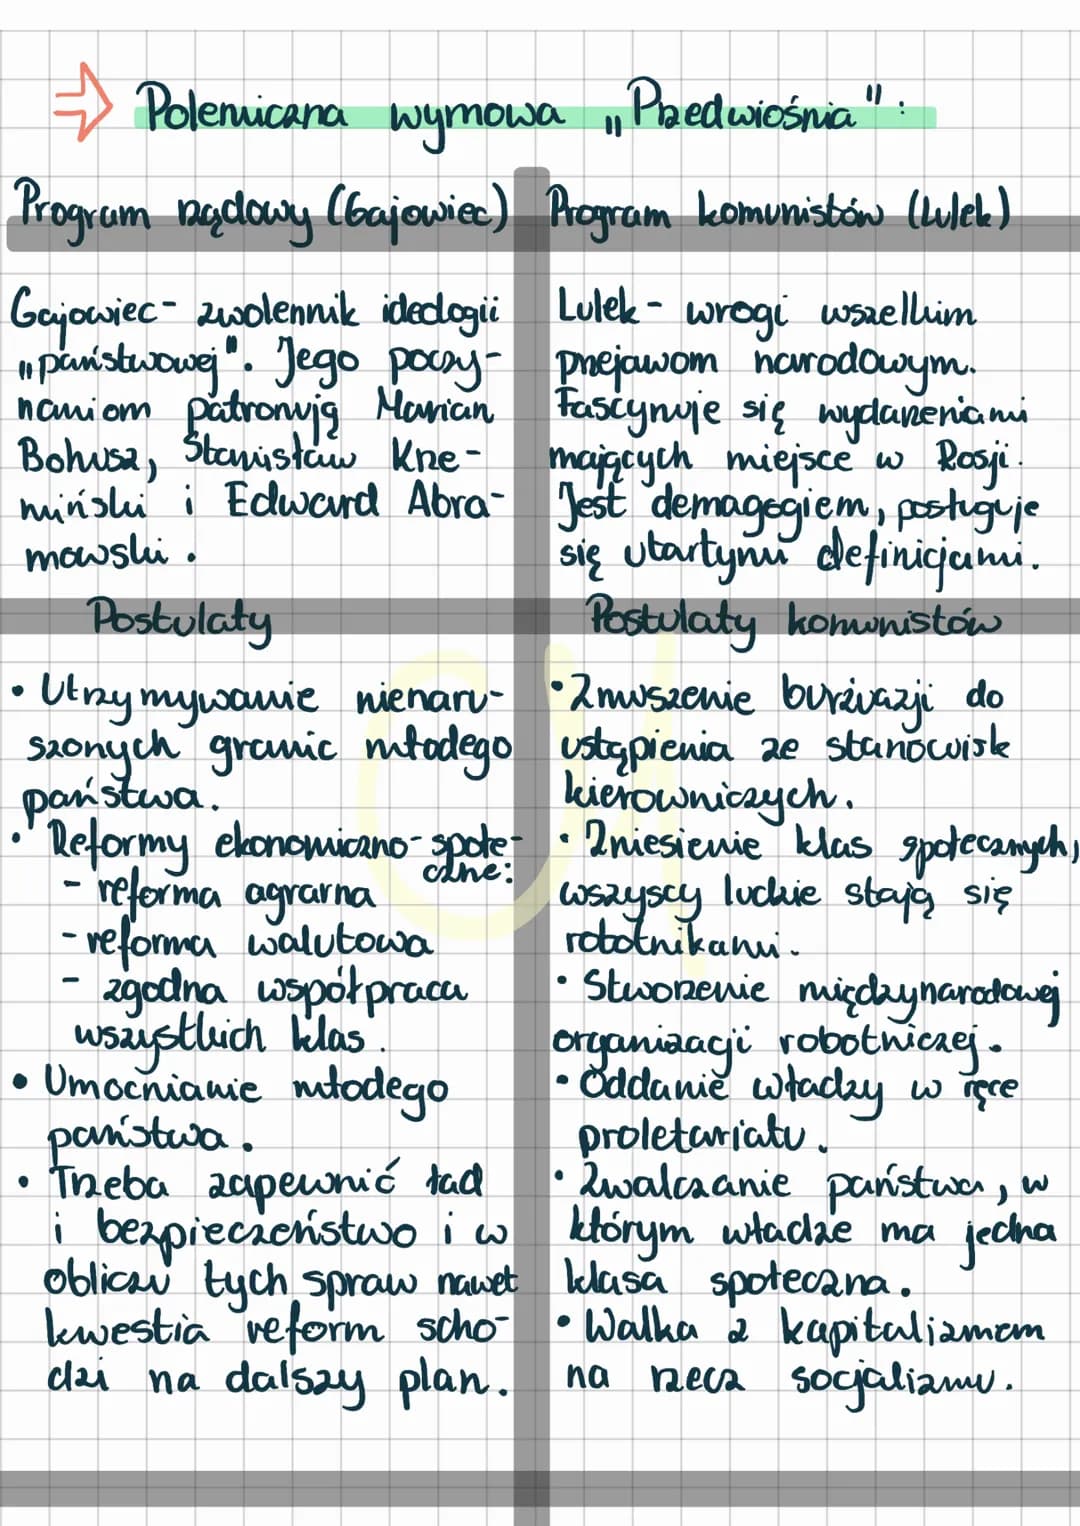 Polemiczna wymowa „Przedwiośnia":
Program rządowy (Gajowiec)
Gajowiec - zwolennik ideologii
„państwowej". Jego poczy-
naniom patronują Marian
Bohusz, Stanisław Krze-
miński i Edward Abra-
mowski.
Postulaty
• Utrzymywanie nienaru-
szonych granic młodego
państwa.
• Reformy ekonomiczno-społe-
czne:
- reforma agrarna
- reforma walutowa
- zgodna współpraca
wszystkich klas.
• Umocnianie młodego
państwa.
• Trzeba zapewnić ład
i bezpieczeństwo i w
obliczu tych spraw nawet
kwestia reform scho-
dzi na dalszy plan.
Program komunistów (Lulek)
Lulek - wrogi wszelkim
przejawom narodowym.
Fascynuje się wydarzeniami
mających miejsce w Rosji.
Jest demagogiem, posługuje
się utartymi definicjami.
Postulaty komunistów
• Zmuszenie burżuazji do
ustąpienia ze stanowisk
kierowniczych.
• Zniesienie klas społecznych,
wszyscy ludzie stają się
robotnikami.
• Stworzenie międzynarodowej
organizacji robotniczej.
• Oddanie władzy w ręce
proletariatu.
• Zwalczanie państwa, w
którym władze ma jedna
klasa społeczna.
• Walka z kapitalizmem
na rzecz socjalizmu.